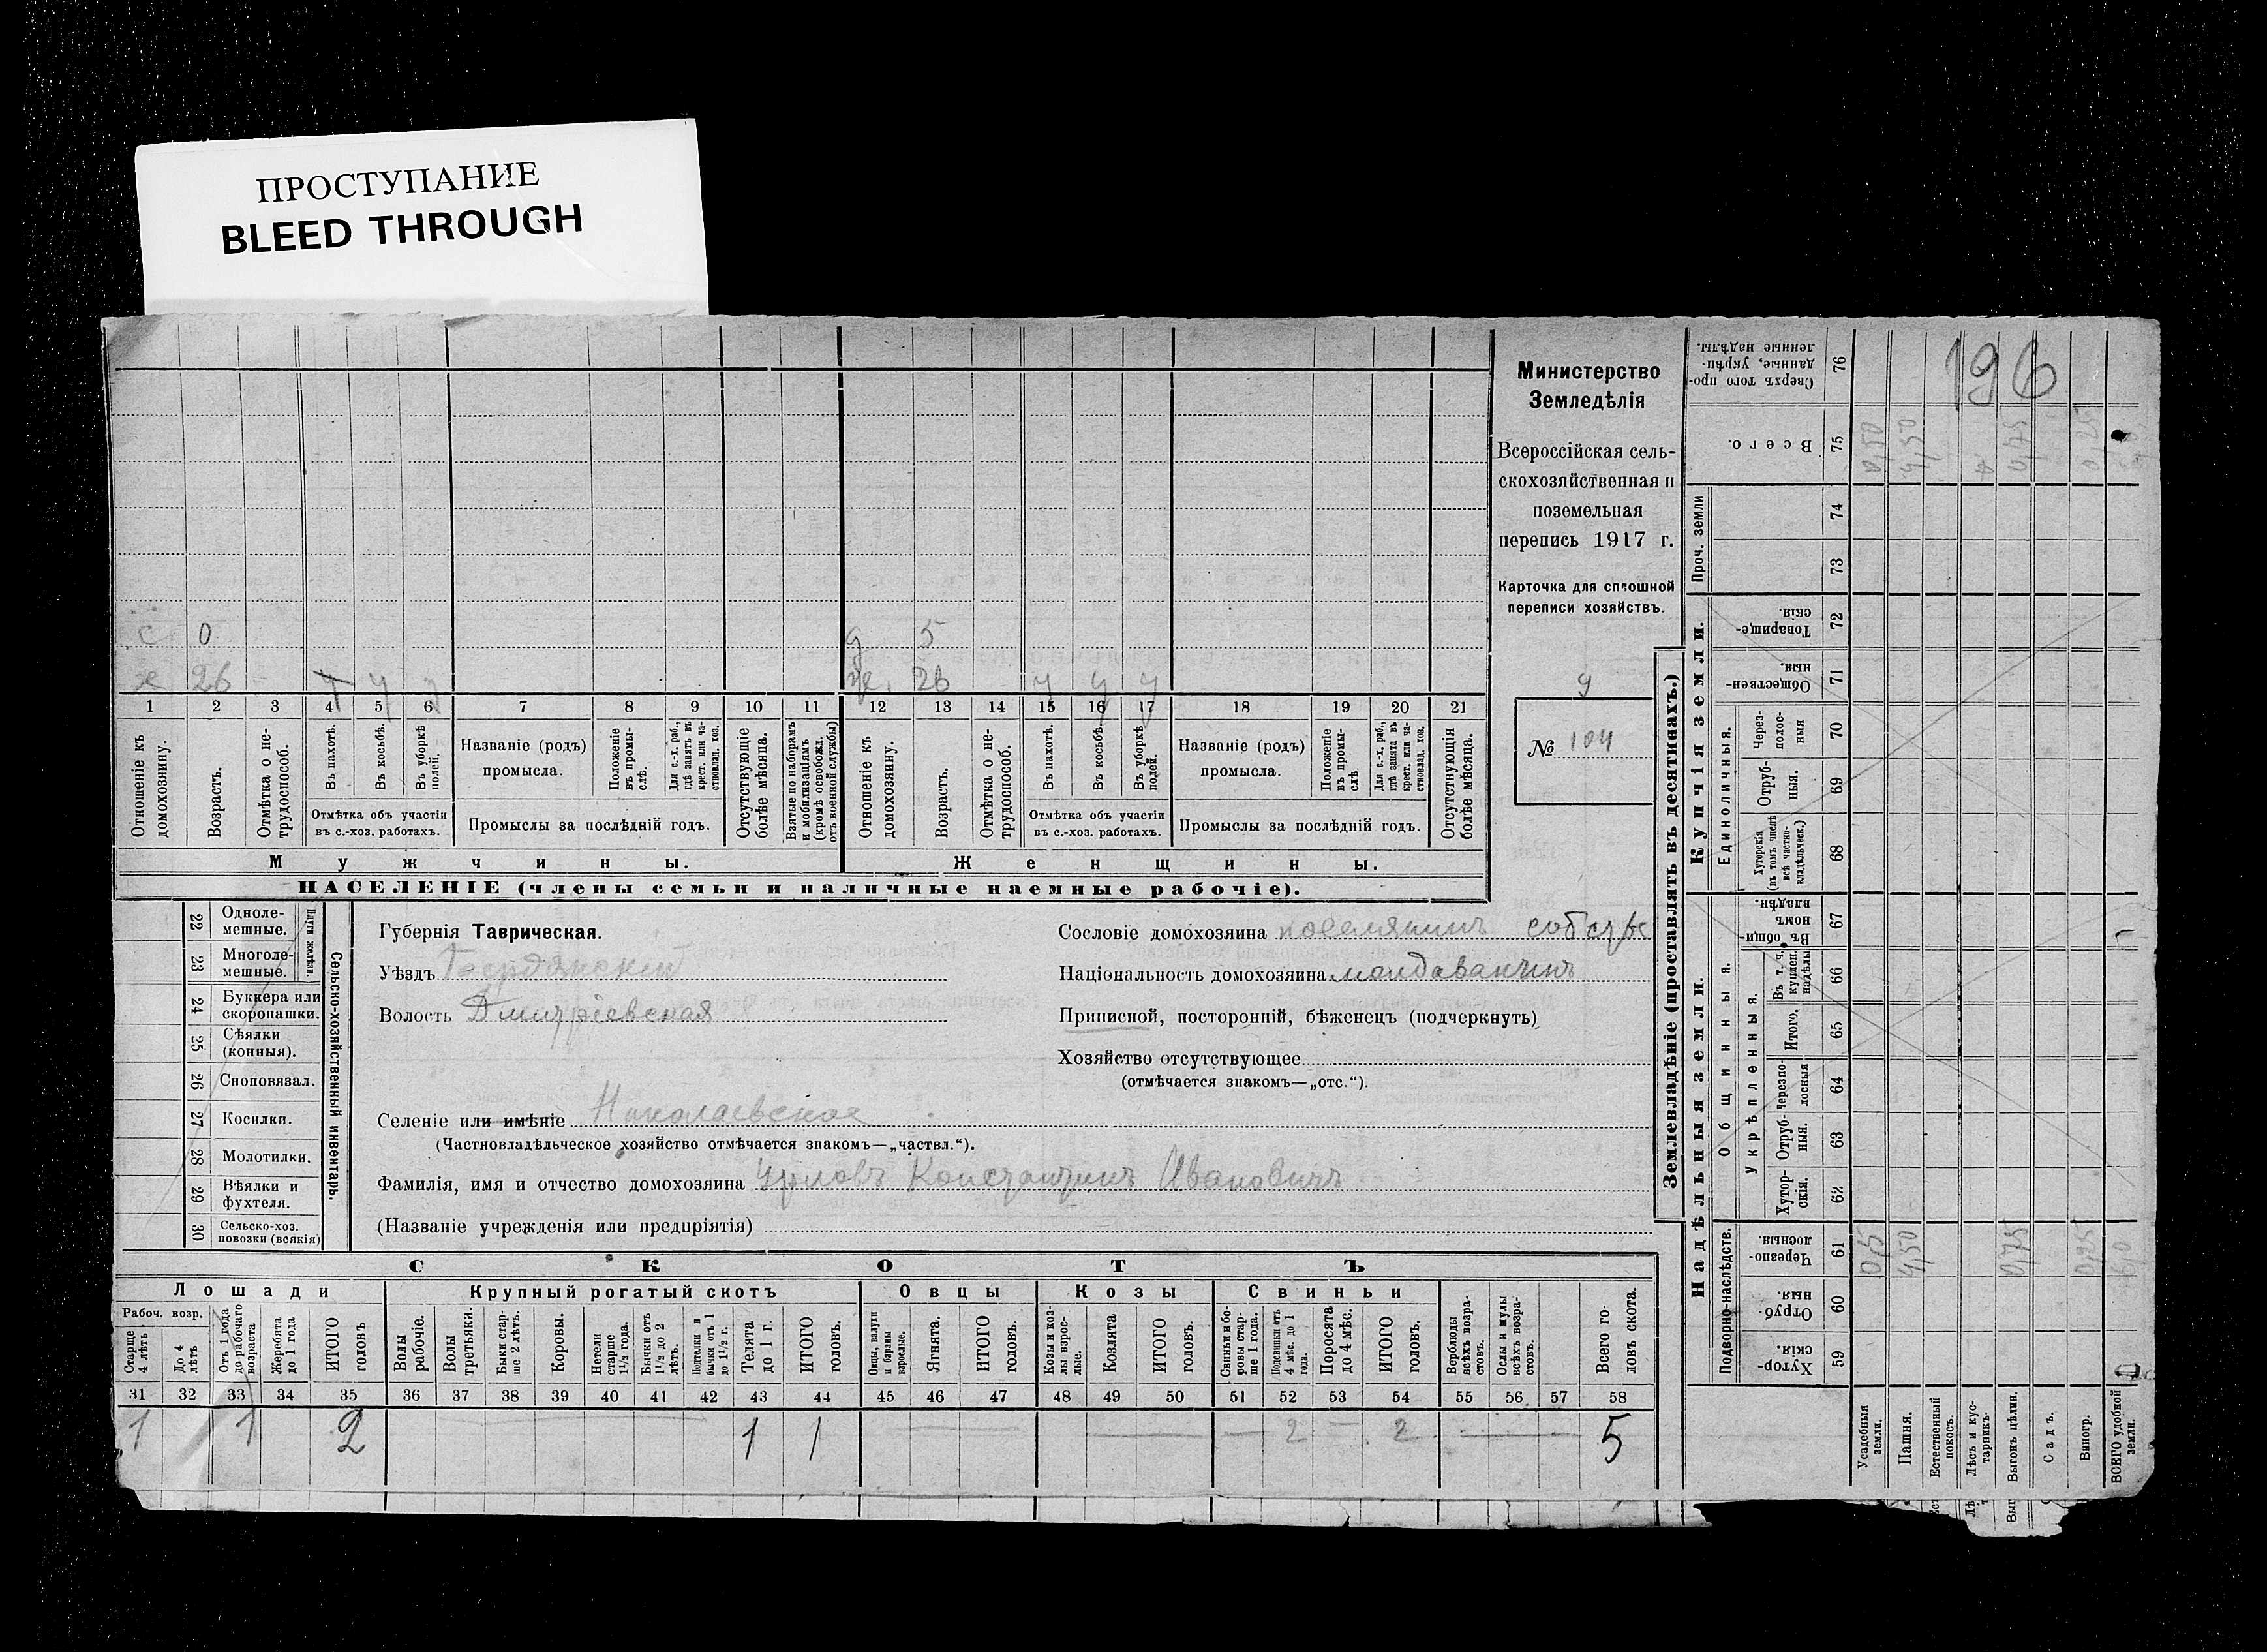 ПРОСТУПАНИЕ
BLEED THROUGH
с 0
д 5
ж 26
26 у у у
1 2 3 4 5 6 7 8 9 10 11 12 13 14 15 16 17 18 19 20 21
Отношеніе къ домохозяину.
Возрастъ.
Отмѣтка о нетрудоспособ.
Въ пахотѣ.
Въ косьбѣ.
Въ уборкѣ полей.
Отмѣтка объ участіи въ с.-хоз. работахъ.
Названіе (родъ) промысла.
Положеніе въ промыслѣ.
Для с.-х. раб., гдѣ занятъ въ крест. или частновлад. хоз.
Промыслы за послѣдній годъ.
Отсутствующіе болѣе мѣсяца.
Взятые по наборамъ и мобилизаціямъ (кромѣ освобожд. отъ военной службы)
Отношеніе къ домохозяину.
Возрастъ.
Отмѣтка о нетрудоспособ.
Въ пахотѣ.
Въ косьбѣ.
Въ уборкѣ полей.
Отмѣтка объ участіи въ с.-хоз. работахъ.
Названіе (родъ) промысла.
Положеніе въ промыслѣ
Для с.-х. раб., гдѣ занята въ крест. или частновлад. хоз.
Промыслы за послѣдній годъ.
Отсутствующія болѣе мѣсяца.
Мужчины.
Женщины.
НАСЕЛЕНІЕ (члены семьи и наличные наемные рабочіе).
Министерство
Земледѣлія
Всероссійская сель-
скохозяйственная и
поземельная
перепись 1917 г.
Карточка для сплошной
переписи хозяйствъ.
9
№ 104
22 Одноле-мешные.
23 Многоле-мешные.
Плуги желѣзн.
24 Буккера или скоропашки.
25 Сѣялки (конныя).
26 Сноповязал.
27 Косилки.
28 Молотилки.
29 Вѣялки и фухтеля.
30 Сельско-хоз. повозки (всякія)
Сельско-хозяйственный инвентарь.
Губернія Таврическая.
Уѣздъ Бердянскій
Волость Дмитріевская
Селеніе или имѣніе Николаевское
(Частновладѣльческое хозяйство отмѣчается знакомъ—„частвл.“).
Фамилія, имя и отчество домохозяина Константинъ Ивановичъ
(Названіе учрежденія или предпріятія)
Сословіе домохозяина поселянинъ собств
Національность домохозяина молдаванинъ
Приписной, посторонній, бѣженецъ (подчеркнуть)
Хозяйство отсутствующее
(отмѣчается знакомъ—„отс.“).
СКОТЪ
Лошади
Крупный рогатый скотъ
Овцы
Козы
Свиньи
Рабоч. возр.
Старше 4 лѣтъ
До 4 лѣтъ
Отъ 1 года до рабочаго возраста
Жеребята до 1 года
ИТОГО головъ
Волы рабочіе.
Волы третьяки.
Быки старше 2 лѣтъ.
Коровы.
Нетели старше 1½ года.
Бычки отъ 1½ до 2 лѣтъ.
Подтелки и бычки отъ 1 до 1½ г.
Телята до 1 г.
ИТОГО головъ.
Овцы, валухи и бараны взрослые.
Ягнята.
ИТОГО головъ.
Козы и козлы взрослые.
Козлята
ИТОГО головъ.
Свиньи и боровы старше 1 года.
Подсвинки отъ 4 мѣс. до 1 года.
Поросята до 4 мѣс.
ИТОГО головъ.
Верблюды всѣхъ возрастовъ.
Ослы и мулы всѣхъ возрастовъ.
Всего головъ скота.
31 32 33 34 35 36 37 38 39 40 41 42 43 44 45 46 47 48 49 50 51 52 53 54 55 56 57 58
1 1 2 1 1 2 2 5
Землевладѣніе (проставлять въ десятинахъ.)
Надѣльныя земли.
Купчія земли.
Проч. земли
Подворно-наслѣдств.
Общинныя.
Укрѣпленныя.
Единоличныя.
Хуторскія. 59
Отрубныя. 60
Черезполосныя. 61
Хуторскія. 62
Отрубныя. 63
Черезполосныя 64
Итого. 65
Въ т. ч. куплен. надѣлы 66
Въ общинномъ владѣн. 67
Хуторскія (въ томъ числѣ всѣ частновладѣльческ.) 68
Отрубныя. 69
Черезполосныя 70
Общественныя. 71
Товарищескія. 72
73
74
Всего. 75
Сверхъ того проданные, укрѣпленные надѣлы. 76
196
0,50 4,50 0,75 0,25
0,5 4,50 0,75 0,25 6,0
Усадебныя земли.
Пашня.
Естественный покосъ.
Лѣсъ и кустарникъ.
Выгонъ цѣлин.
Садъ.
Виногр.
ВСЕГО удобной земли.